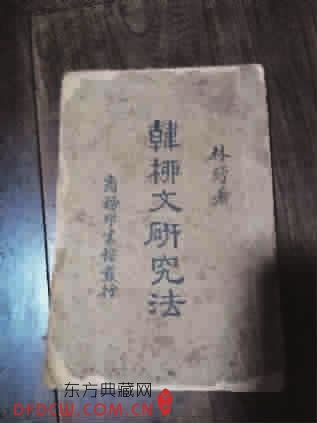 林紓著
韓柳文研究法
商務印書館發行
东方典藏网
DFDCW.COM.CN